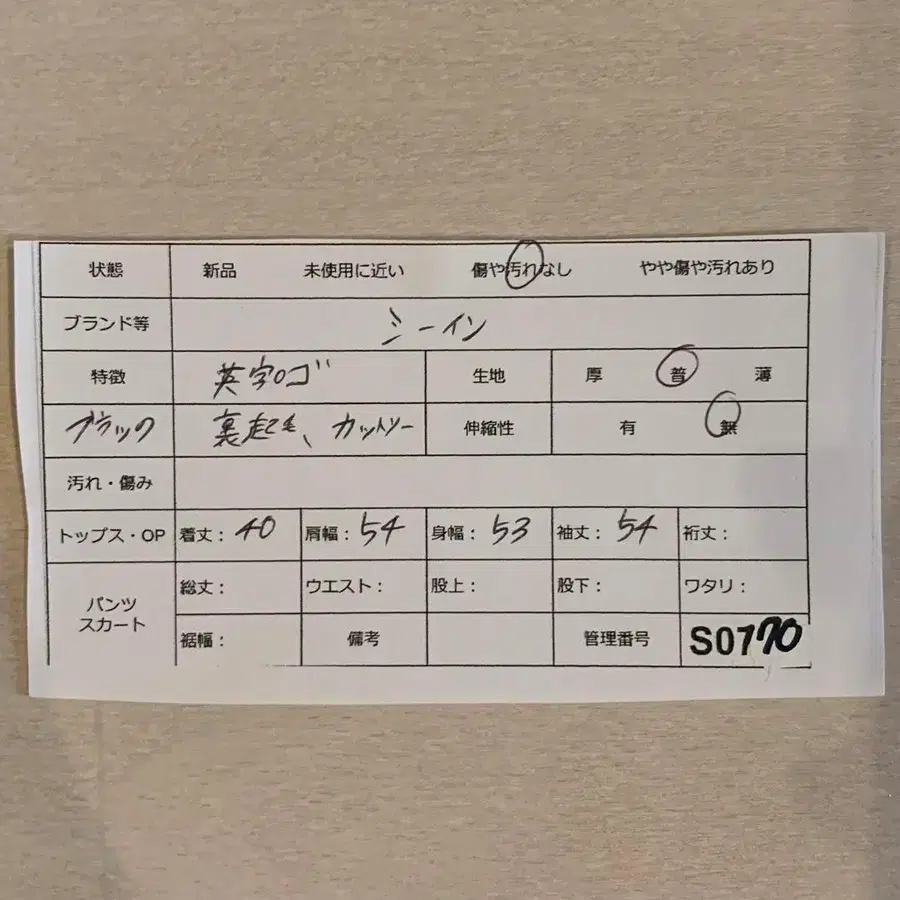 状態 新品 未使用に近い 傷や汚れなし やや傷や汚れあり
ブランド等 シーイン
特徴 英字ロゴ 生地 厚 普 薄
ブラック 裏起も、カットソー 伸縮性 有 無
汚れ・傷み
トップス・OP 着丈：40 肩幅：54 身幅：53 袖丈：54 裄丈：
パンツ スカート 総丈： ウエスト： 股上： 股下： ワタリ：
裾幅： 備考 管理番号 S0770